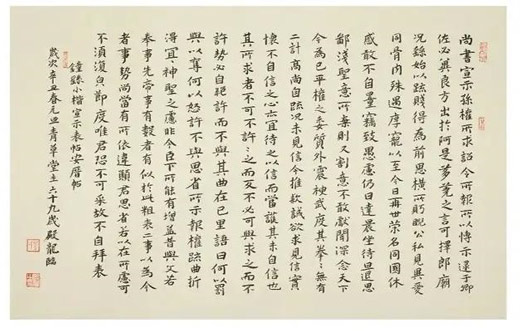 尚書宣示孫權所求詔令所報所以博示逮于卿
佐必冀良方出於阿是芻蕘之言可擇郎廟
況繇始以疏賤得為前恩橫所盻睨公私見異愛
同骨肉殊遇厚寵以至今日再世榮名同國休
慼敢不自量竊致愚慮仍日達晨坐待旦退思
鄙淺聖意所棄則又割意不敢獻聞深念天下
今為已平權之委質外震神武度其拳々無有
二計高尚自疏況未見信今推款誠欲求見信實
懷不自信之心亦宜待之以信而當護其未自信也
其所求者不可不許々之而反不必可與求之而不
許勢必自絕許而不與其曲在己里語曰何以罰
與以奪何以怒許不與思省所示報權疏曲折
得宜神聖之慮非今臣下所能有增益昔與文若
奉事先帝事有數者有似於此粗表二事以為今
者事勢尚當有所依違願君思省若以在所慮可
不須復與君節度唯君恐不可采故不自拜表
鍾繇小楷宣示表帖
歲次辛丑春元旦青草堂主六十九歲殿龍臨